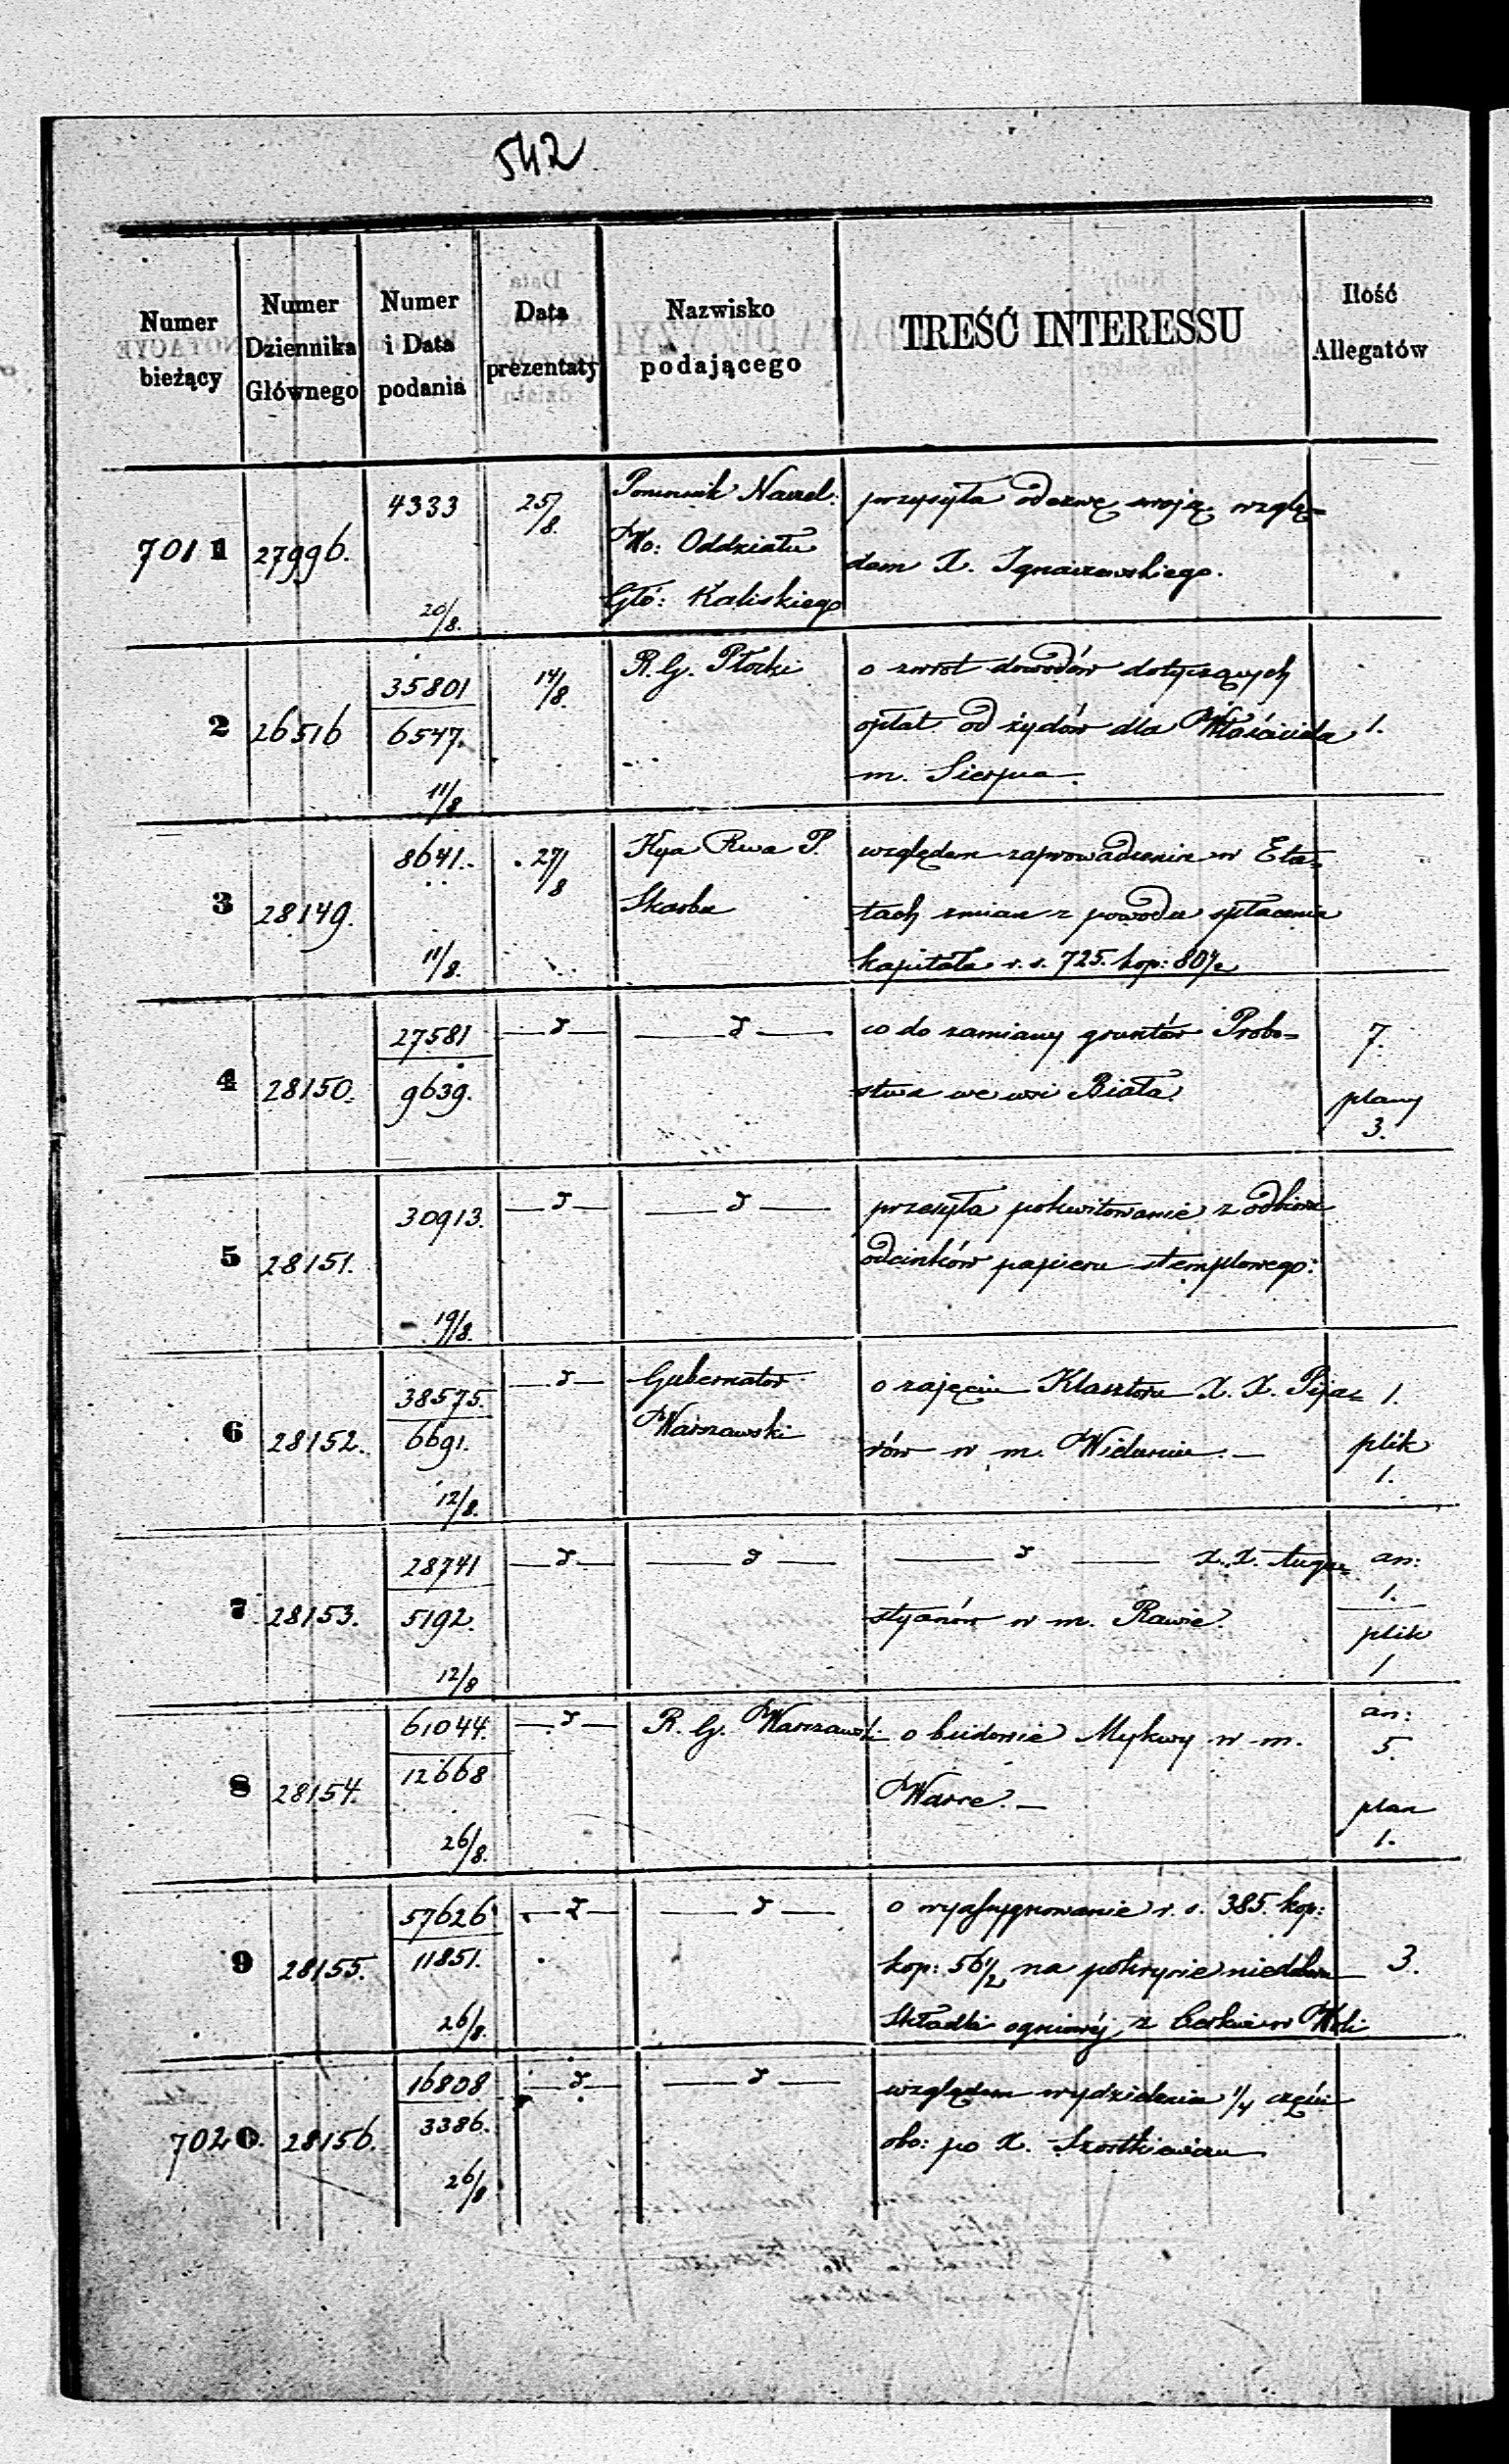 542
Numer bieżący
Numer Dziennika Głównego
Numer i Data podania
Data prezentaty
Nazwisko podającego
TREŚĆ INTERESSU
Ilość Allegatów
7011 27996. 4333 20/8. 25/8.
Pomocnik Naczel:
Wo: Oddziału
Głó: Kaliskiego
przysyła odezwę swoję wzglę=
dem X. Ignaczewskiego.
2 26516 35801 6547. 11/8 14/8.
R. G. Płocki
o zwrot dowodów dotyczących
opłat od żydów dla Właściciela
m. Sierpca.
1.
3 28149. 8641. 11/8. 27/8
Kya Rwa P.
Skarbu
względem zaprowadzenia w Eta=
tach zmian z powodu spłacenia
kapitału r. s. 725. kop: 80 1/2
4 28150. 27581 9639. — d — — d —
co do zamiany gruntów Probo=
stwa we wsi Biała.
7.
plany
3.
5 28151. 30913. 19/8. — d — — d —
przesyła pokwitowanie z odbioru
odcinków papieru stemplowego:
6 28152. 38575. 6691. 12/8. — d —
Gubernator
Warszawski
o zajęciu Klasztoru X. X. Pija=
rów w m. Wieluniu. —
1.
plik
1.
7 28153. 28741 5192. 12/8 — d — — d —
— d — X. X. Augu=
styanów w m. Rawie.
an:
1.
plik
1
8 28154. 61044. 12668 26/8. — d —
R. G. Warszawski
o budowie Mykwy w m.
Warce. —
an:
5.
plan
1.
9 28155. 57626 11851. 26/8. — d — — d —
o wyasygnowanie r. s. 385. kop:
kop: 56 1/2 na pokrycie niedoboru
składki ogniowéj z Woli
3.
7020. 28156. 16808 3386. 26/8 — d — — d —
względem wydzielenia 1/4 części
obo: po X. Szostkiewiczu